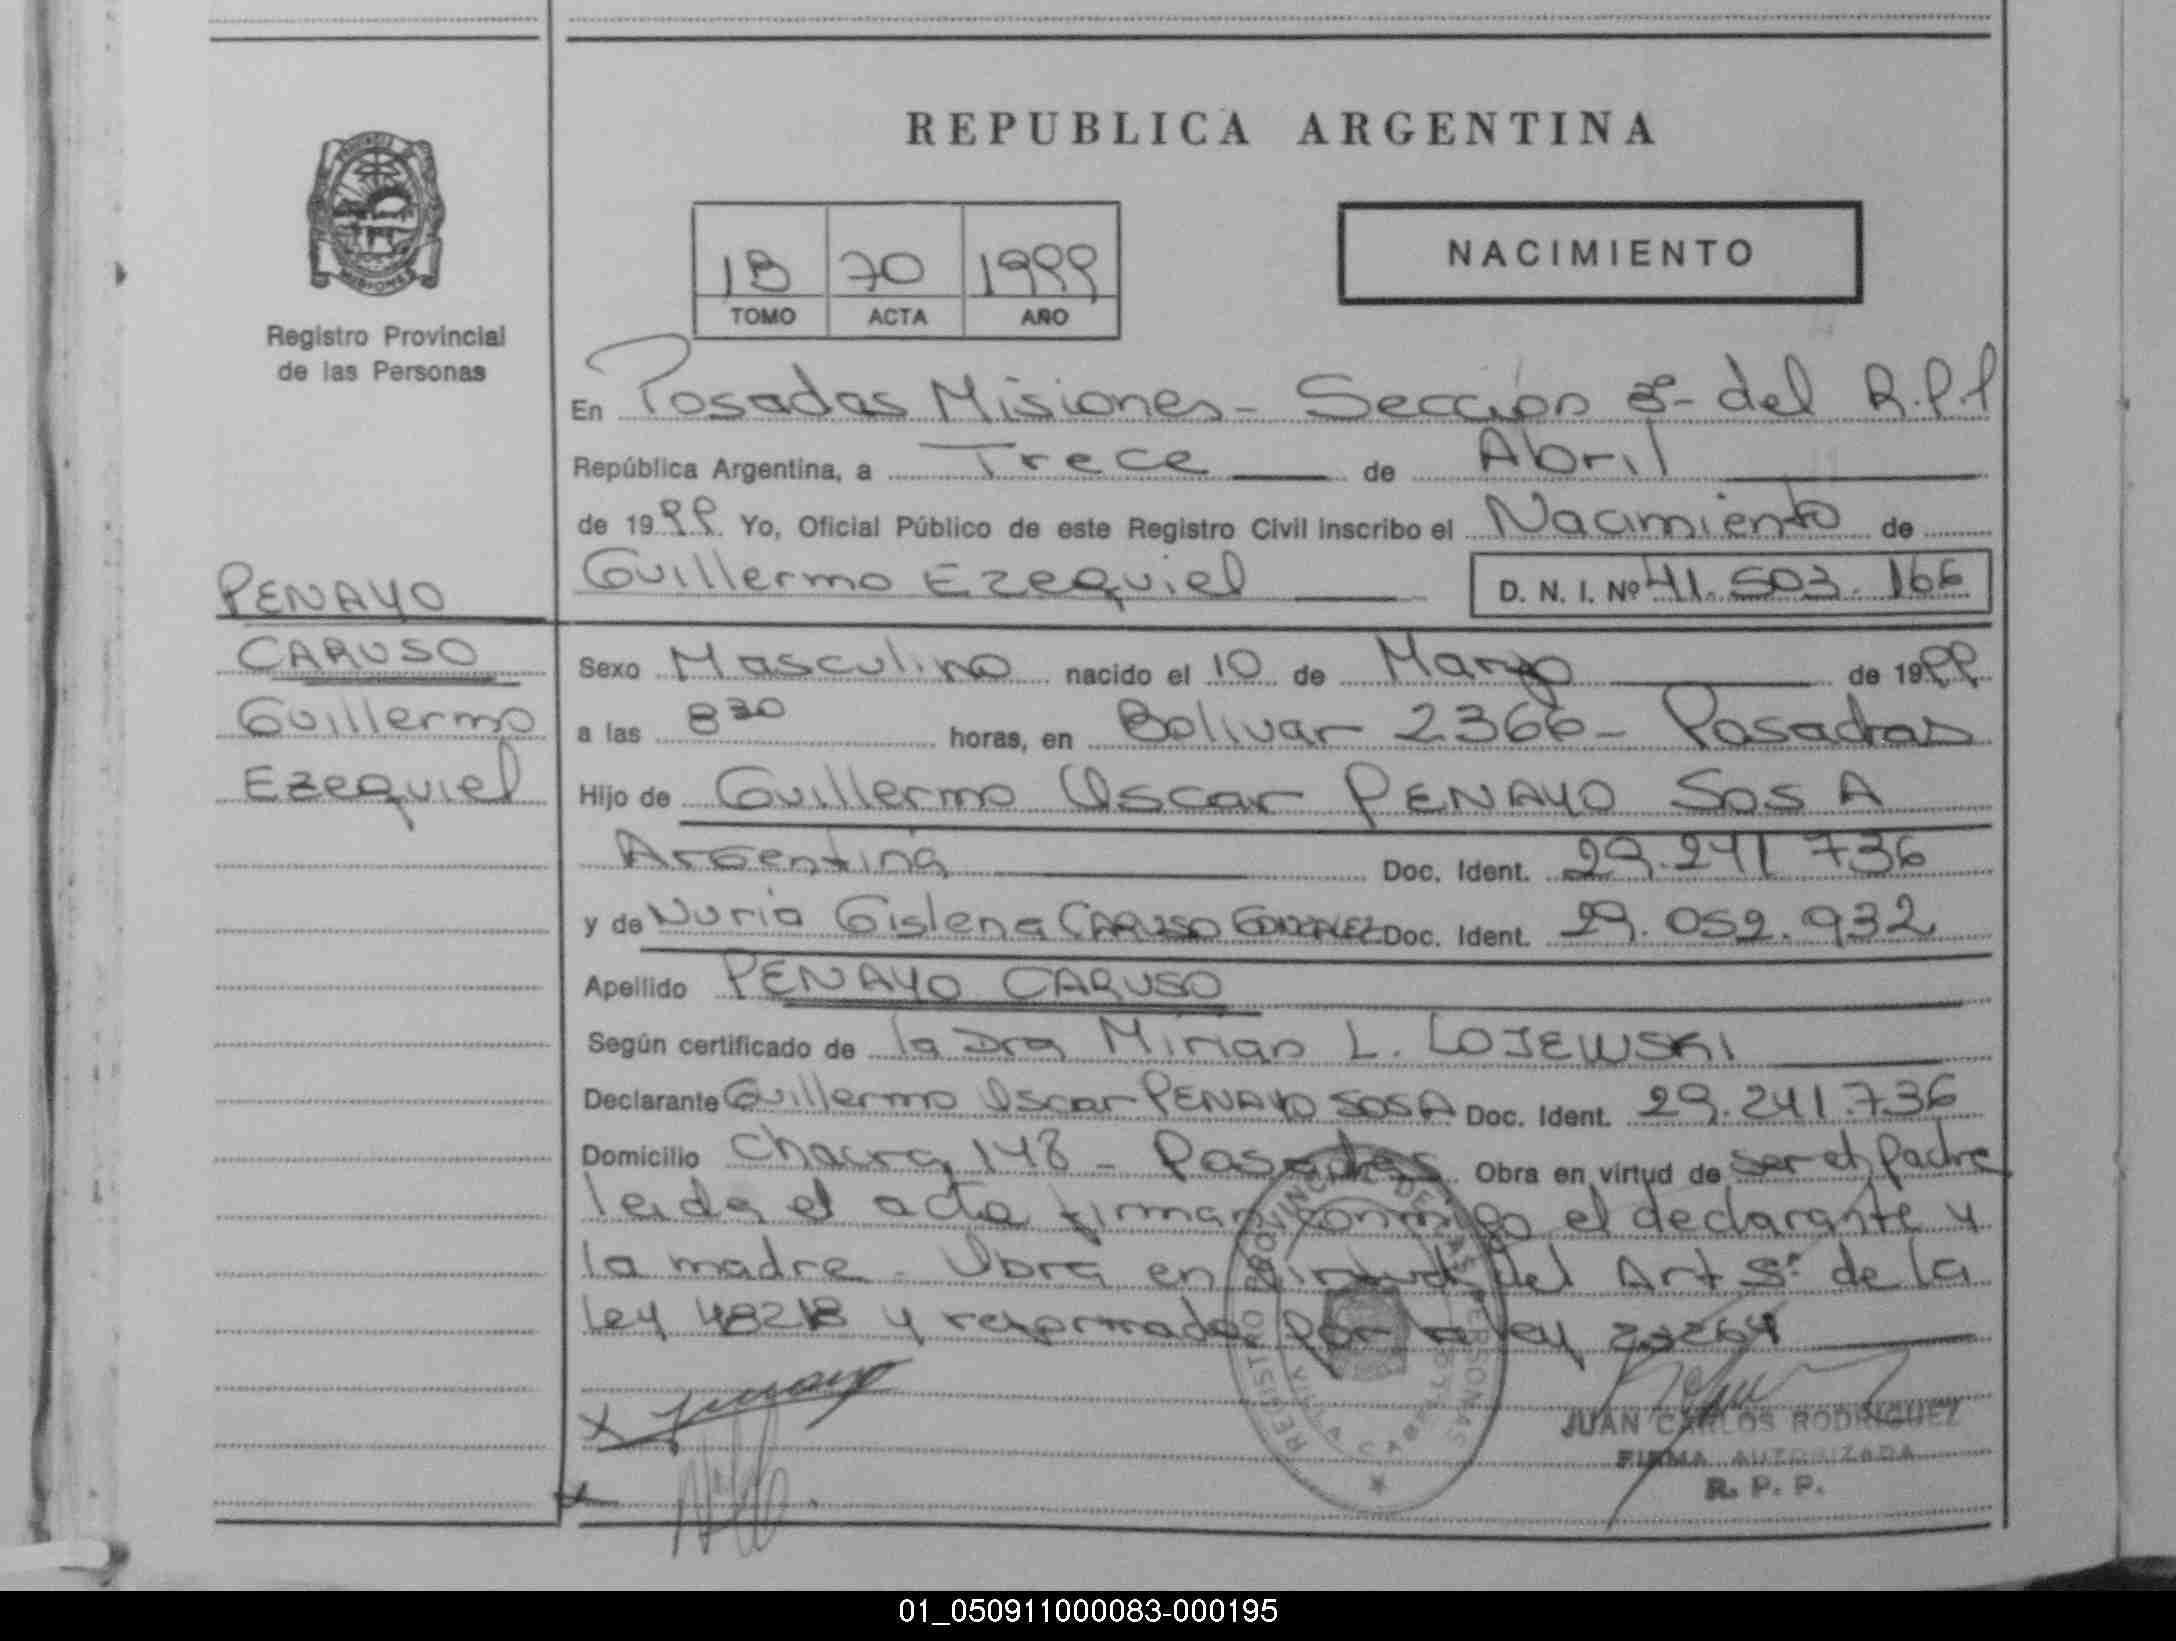 REPUBLICA ARGENTINA
1B 70 1999
TOMO ACTA AÑO
NACIMIENTO
PROVINCIA DE MISIONES
Registro Provincial
de las Personas
En Posadas Misiones - Sección 3ª del R.P.P
República Argentina, a Trece de Abril
de 1999. Yo, Oficial Público de este Registro Civil inscribo el Nacimiento de
Guillermo Ezequiel D. N. I. Nº 41.503.166
PENAYO
CARUSO
Guillermo
Ezequiel
Sexo Masculino nacido el 10 de Marzo de 1999
a las 8 30 horas, en Bolivar 2366 - Posadas
Hijo de Guillermo Oscar PENAYO SOSA
Argentina Doc. Ident. 29.241 736
y de Nuria Gislena CARUSO GONZALEZ Doc. Ident. 29.052.932
Apellido PENAYO CARUSO
Según certificado de la Dra Mirian L. LOJEWSKI
Declarante Guillermo Oscar PENAYO SOSA Doc. Ident. 29.241.736
Domicilio Chacra 148 - Posadas Obra en virtud de ser el padre
leida el acta firman conmigo el declarante y
la madre. Obra en virtud del Art 5º de la
ley 18248 y reformada por la ley 23264
REGISTRO PROVINCIAL DE LAS PERSONAS
JUAN CARLOS RODRIGUEZ
FIRMA AUTORIZADA
R. P. P.
01_050911000083-000195